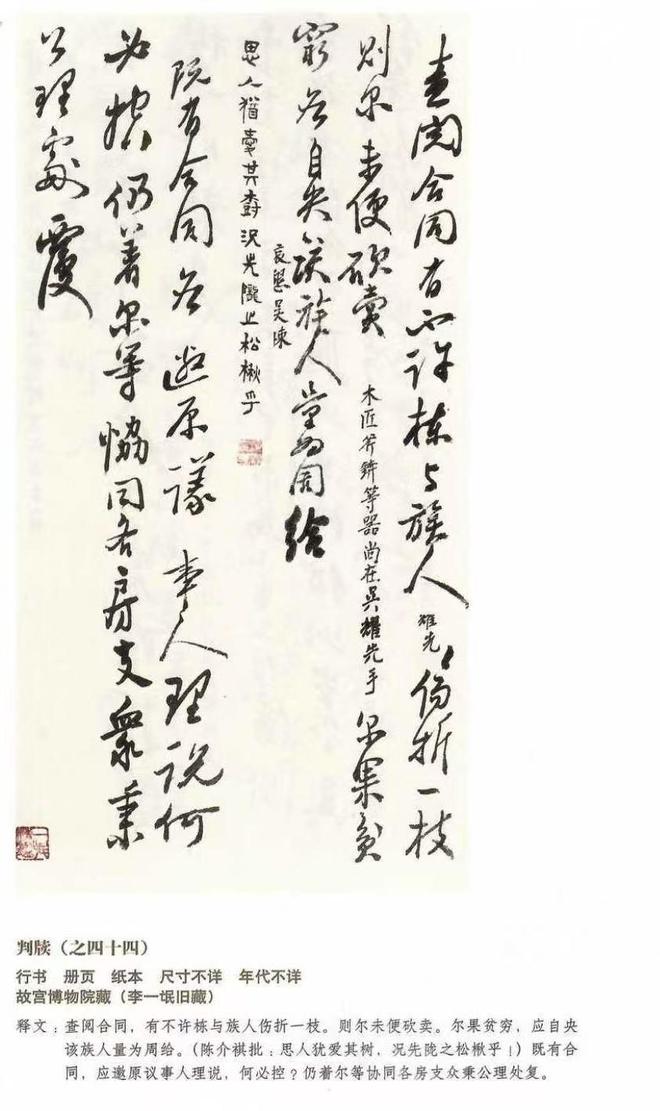 查阅合同有不许栋与族人耀先伤折一枝
则尔未便砍賣木匠斧鋅等器尚在吴耀先手尔果貧
窮应自央该族人量为周给
哀懇吴陳
思人猶愛其樹況先隴之松楸乎
既有合同应邀原議事人理説何
必控仍着尔等協同各房支衆秉
公理處覆
判牍（之四十四）
行书 册页 纸本 尺寸不详 年代不详
故宫博物院藏（李一氓旧藏）
释文：查阅合同，有不许栋与族人伤折一枝。则尔未便砍卖。尔果贫穷，应自央
该族人量为周给。（陈介祺批：思人犹爱其树，况先陇之松楸乎！）既有合
同，应邀原议事人理说，何必控？仍着尔等协同各房支众秉公理处复。